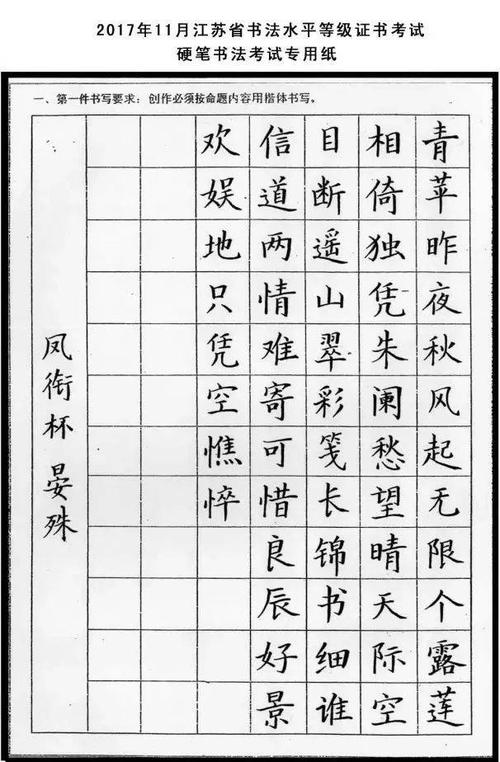 2017年11月江苏省书法水平等级证书考试
硬笔书法考试专用纸
一、第一件书写要求：创作必须按命题内容用楷体书写。
青苹昨夜秋风起无限个露莲
相倚独凭朱阑愁望晴天际空
目断遥山翠彩笺长锦书细谁
信道两情难寄可惜良辰好景
欢娱地只凭空憔悴
凤衔杯 晏殊